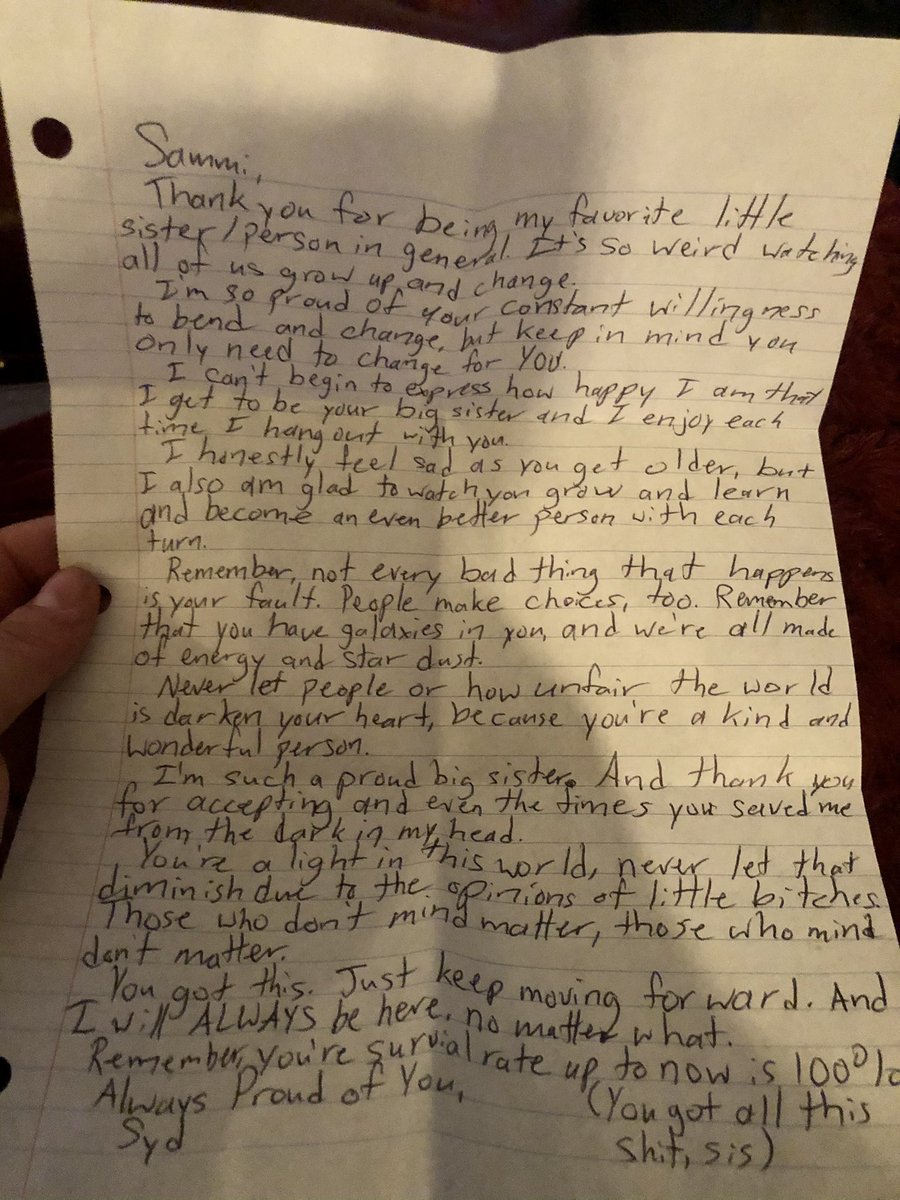 Sammi,
Thank you for being my favorite little
sister/person in general. It's so weird watching
all of us grow up and change.
I'm so proud of your constant willingness
to bend and change, but keep in mind you
only need to change for YOU.
I can't begin to express how happy I am that
I get to be your big sister and I enjoy each
time I hang out with you.
I honestly feel sad as you get older, but
I also am glad to watch you grow and learn
and become an even better person with each
turn.
Remember, not every bad thing that happens
is your fault. People make choices, too. Remember
that you have galaxies in you, and we're all made
of energy and star dust.
Never let people or how unfair the world
is darken your heart, because you're a kind and
wonderful person.
I'm such a proud big sister. And thank you
for accepting and even the times you saved me
from the dark in my head.
You're a light in this world, never let that
diminish due to the opinions of little bitches.
Those who don't mind matter, those who mind
don't matter.
You got this. Just keep moving forward. And
I will ALWAYS be here, no matter what.
Remember, you're survial rate up to now is 100%
Always Proud of You, (You got all this
Syd shit, sis)